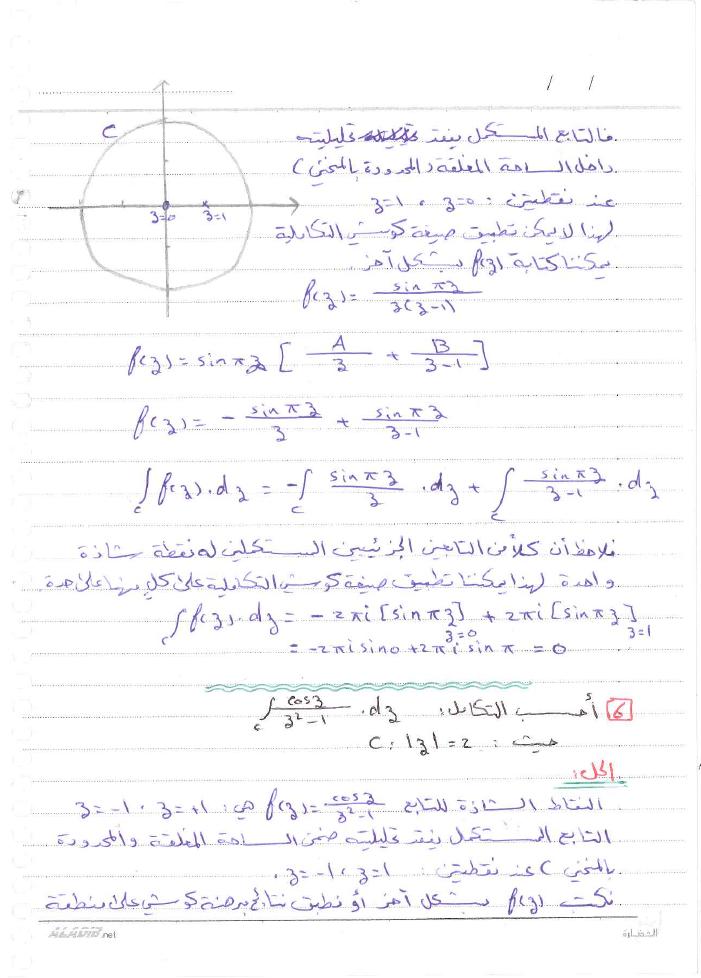 / /
فالتابع المستكمل يفقد تحليليته
داخل الساحة المغلقة (المحدودة بالمنحني C)
عند نقطتين : z=0 ، z=1
لهذا لا يمكن تطبيق صيغة كوشي التكاملية
يمكننا كتابة f(z) بشكل آخر .
C
z=0 z=1
f(z) = sin πz / z(z-1)
f(z) = sin πz [ A/z + B/z-1 ]
f(z) = - sin πz / z + sin πz / z-1
∫c f(z).dz = -∫c sin πz / z .dz + ∫c sin πz / z-1 .dz
فلاحظ أن كلاً من التابعين الجزئيين المستكملين له نقطة شاذة
واحدة لهذا يمكننا تطبيق صيغة كوشي التكاملية على كلٍ منها على حدة
∫c f(z).dz = -2πi [sin πz] z=0 + 2πi [sin πz] z=1
= -2πi sin 0 + 2πi sin π = 0
6 أحسب التكامل: ∫c cos z / z²-1 .dz
حيث : C: |z| = 2
الحل:
النقاط الشاذة للتابع f(z) = cos z / z²-1 هي: z=+1 ، z=-1
التابع المستكمل يفقد تحليليته ضمن الساحة المغلقة والمحدودة
بالمنحني C عند نقطتين : z=1 ، z=-1 .
نكتب f(z) بشكل آخر أو نطبق نتائج برهنة كوشي على منطقة
ALADIB.net
الحضارة